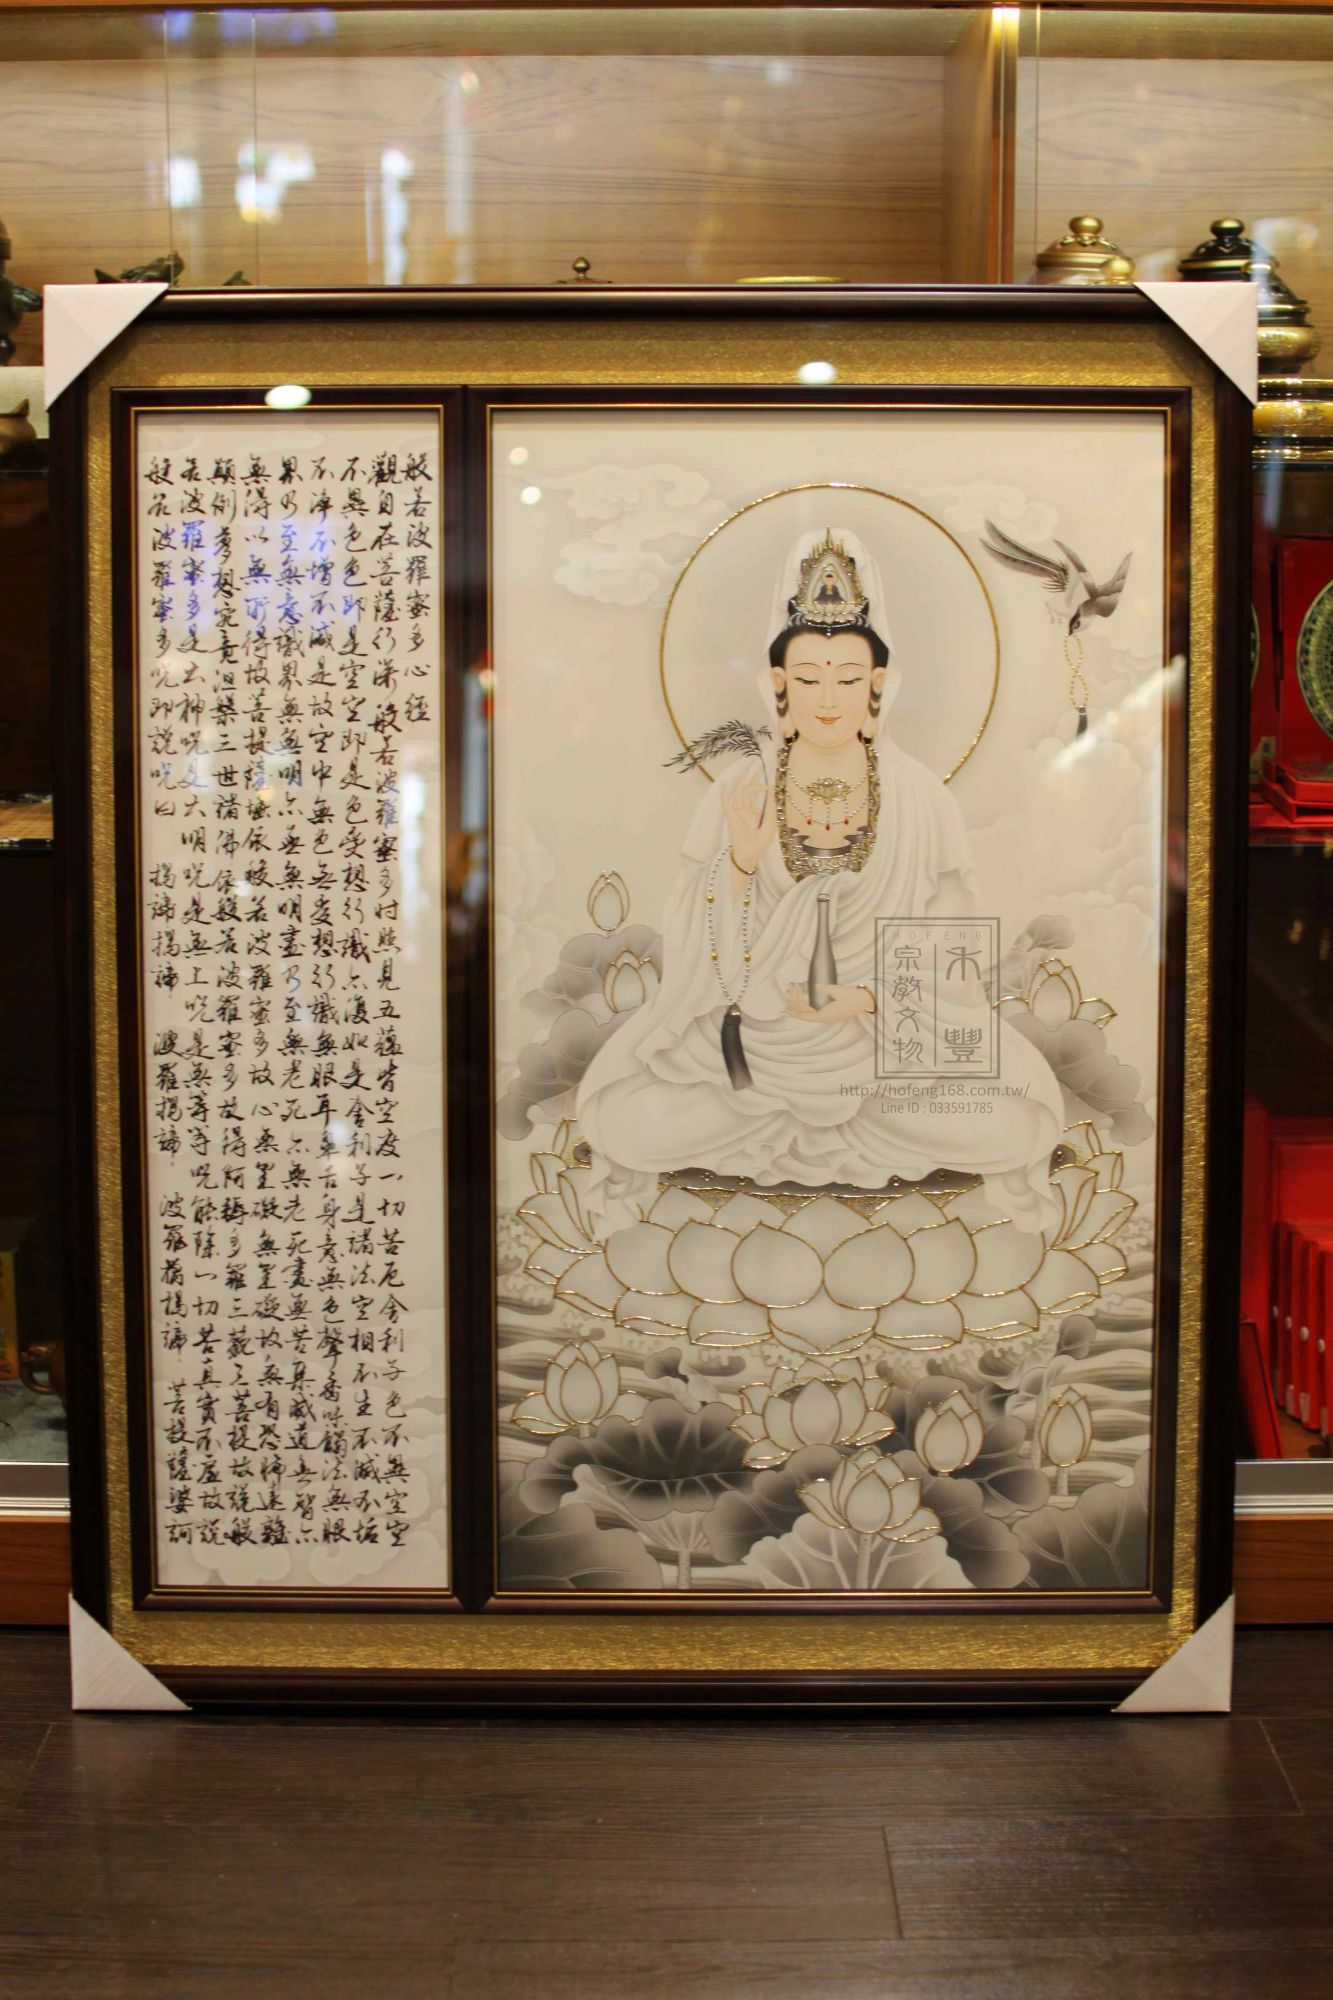 般若波羅蜜多心經
觀自在菩薩行深般若波羅蜜多時照見五蘊皆空度一切苦厄舍利子色不異空空
不異色色即是空空即是色受想行識亦復如是舍利子是諸法空相不生不滅不垢
不淨不增不減是故空中無色無受想行識無眼耳鼻舌身意無色聲香味觸法無眼
界乃至無意識界無無明亦無無明盡乃至無老死亦無老死盡無苦集滅道無智亦
無得以無所得故菩提薩埵依般若波羅蜜多故心無罣礙無罣礙故無有恐怖遠離
顛倒夢想究竟涅槃三世諸佛依般若波羅蜜多故得阿耨多羅三藐三菩提故說般
若波羅蜜多是大神咒是大明咒是無上咒是無等等咒能除一切苦真實不虛故說
般若波羅蜜多咒即說咒曰 揭諦揭諦 波羅揭諦 波羅僧揭諦 菩提薩婆訶
HOFENG
禾豐
宗教文物
http://hofeng168.com.tw/
Line ID : 033591785